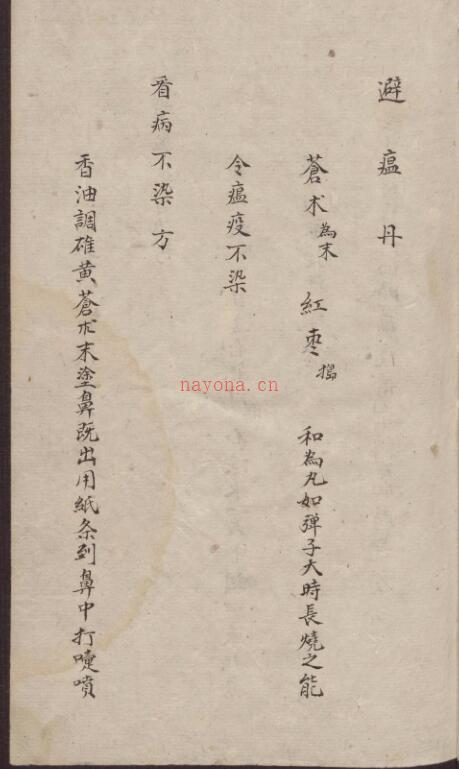 避瘟丹
蒼术為末 紅枣搗 和為丸如彈子大時長燒之能
令瘟疫不染
看病不染方
香油調雄黄蒼朮末塗鼻既出用紙条到鼻中打嚏噴
nayona.cn